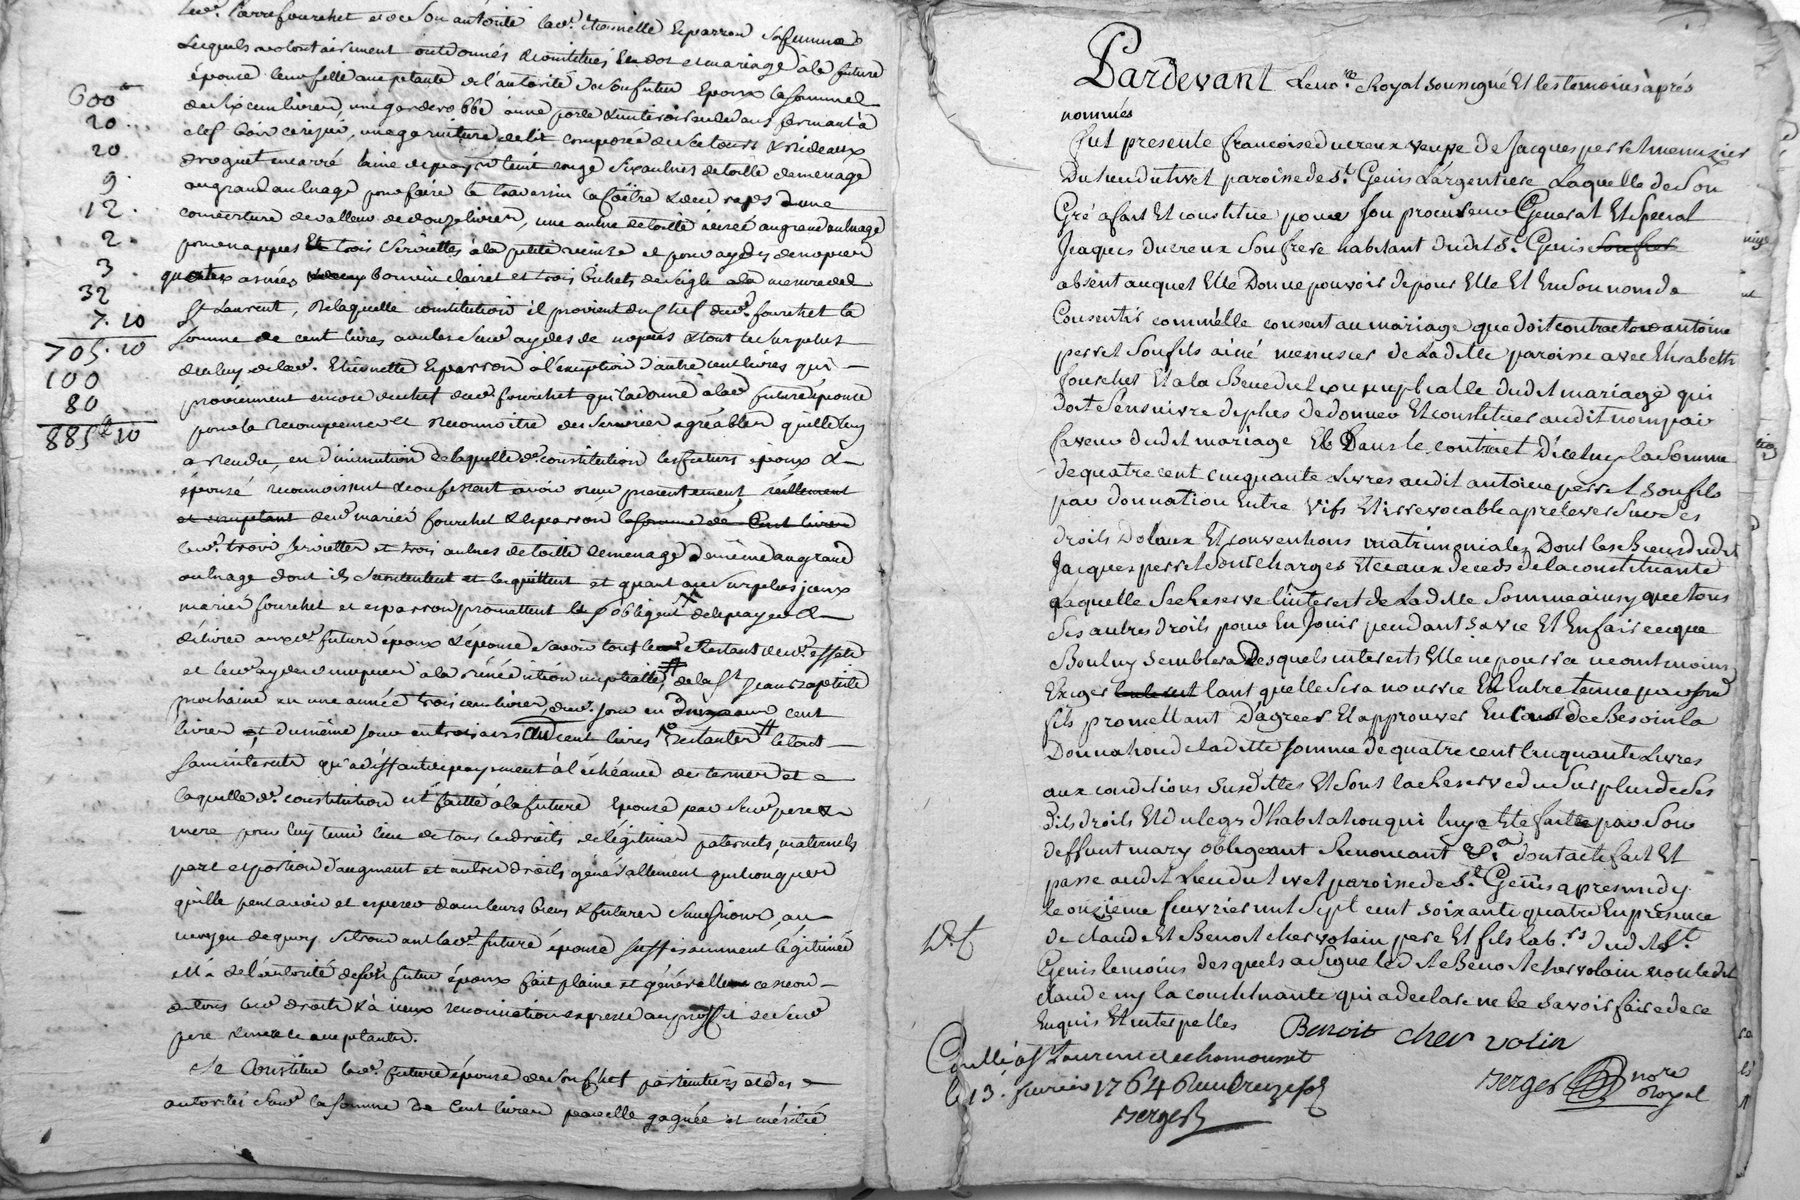 600
20
20
9
12
2
3
32
7. 10
705. 10
100
80
885 10
Sr. fourchet et de Son autorité lad. Etiennette Eparron Sa femme
Lesquels volontairement ont donnés & constitués En dot et mariage à la future
épouse leur fille acceptante de l'autorité de son futur Epoux la Somme
de six cent livres, une garderobbe à une porte
clef bois cerisier, une garniture de lit composée de rideaux
droguet en carré laine de pays teint rouge Six aulnes de toille de menage
au grand aulnage pour faire le traversin la & deux draps d'une
couverture de valleur de douze livres, une aulne de toille au grand aulnage
pour nappes Et trois Serviettes à la petite et pour aydes de nopces
quatre asnées bon vin clairet et trois bichets de seigle a la mesure de
St Laurent, De laquelle constitution il provient du Chef dud. fourchet la
Somme de cent livres avec les aydes de nopces & tout le Surplus
de celuy de lad. Etiennette Eparron à l'exception d'autre cent livres qui
proviennent encore du chef dud. fourchet qui l'a donné à lad. future épouse
pour la recompenser et reconnoitre des Services agréables qu'elle luy
a rendu, en diminution de laquelle de. constitution les futurs epoux &
épouse reconnoissent & confessent avoir reçu presentement, réellement
et comptant desd. mariés fourchet & Eparron la Somme de Cent livres
lesd. trois Serviettes et trois aulnes de toille de menage de même au grand
aulnage dont ils Se contentent et les quittent et quant au Surplus iceux
mariés fourchet et Eparron promettent & s'obligent de le payer &
délivrer auxd. futurs époux & épouse Savoir tout le Restant desd. effets
et lesd. aydes de nopces à la bénédiction nuptialle, de la St Jean Baptiste
prochaine en une année trois cent livres, dud. jour en deux ans cent
livres et du même jour en trois ans cent livres restantes le tout
Sans interets qu'à deffaut de payement à l'échéance des termes et
laquelle de. constitution est faitte à la future Epouse par Sesd. pere &
mere pour luy tenir lieu de tous Ses droits de légitimes paternels, maternels
part et portion d'augment et autres droits généralement quelconques
qu'elle peut avoir et esperer dans leurs biens & futures Successions, au
moyen de quoy Se trouvant lad. future épouse suffisamment légitimée
Ella de l'autorité de son futur époux fait plaine et générale cession
de tous Sesd. droits & à iceux renonciation expresse au proffit de Sesd.
pere & mere acceptants.
Se Constitue lad. future épouse de Son Chef
autorités Susd. la Somme de Cent livres par elle gagnée et mérité
Pardevant Le no.re Royal Sousigné Et les temoins après
nommés
Fut presente francoise ducreux veuve de Jacques perret menuzier
Du lieu du tivet paroisse de St. Genis L'argentiere Laquelle de Son
Gré a fait Et constitue pour Son procureur General Et Special
Jacques ducreux Son frere habitant dudit St. Genis
absent auquel Elle Donne pouvoir de pour Elle Et En Son nom de
Consentir comm'elle consent au mariage que doit contracter antoine
perret Son fils ainé menusier de Ladite paroisse avec Elisabeth
fourchet Et a la Benediction nuptialle dudit mariage qui
doit S'ensuivre de plus de donner Et constituer audit nom par
faveur dudit mariage Et Dans le contract D'iceluy la Somme
de quatre cent cinquante Livres audit antoine perret Son fils
par donnation Entre Vifs Et irrevocable a prelever Sur Ses
droits Dotaux Et conventions matrimoniales Dont les Biens dudit
Jacques perret Sont chargés Et ceaux de ceds de la constituante
Laquelle Se Reserve l'interest de Ladite Somme ainsy que tous
Ses autres droits pour En Jouir pendant Sa vie Et En faire ce que
Bon luy Semblera Desquels interests Elle ne pourra neantmoins
Exiger tant quelle Sera nourrie Et Entretenue par Sond
fils promettant D'agreer Et approuver En tant de Besoin la
Donnation de ladite Somme de quatre cent Cinquante Livres
aux conditions Susdittes Et Sous la Reserve du Surplus de Ses
dits droits Et du legs D'habitation qui luy a Eté fait par Son
deffunt mary obligeant Renonceant &.a dont acte fait Et
passé audit Lieu du tivet paroisse de St. Genis apres midy
le onzieme fevrier mil Sept cent soixante quatre En presence
de claude Et Benoit chervolain pere Et fils lab.rs dudit St.
Genis temoins desquels a Signé led. Benoit chervolain non ledit
claude ny la constituante qui a declaré ne le Savoir faire de ce
Enquis Et interpellés Benoit cher volin
Berger no.re Royal
Con.llé a St Laurent de chamousset
le 13. fevrier 1764
Berger